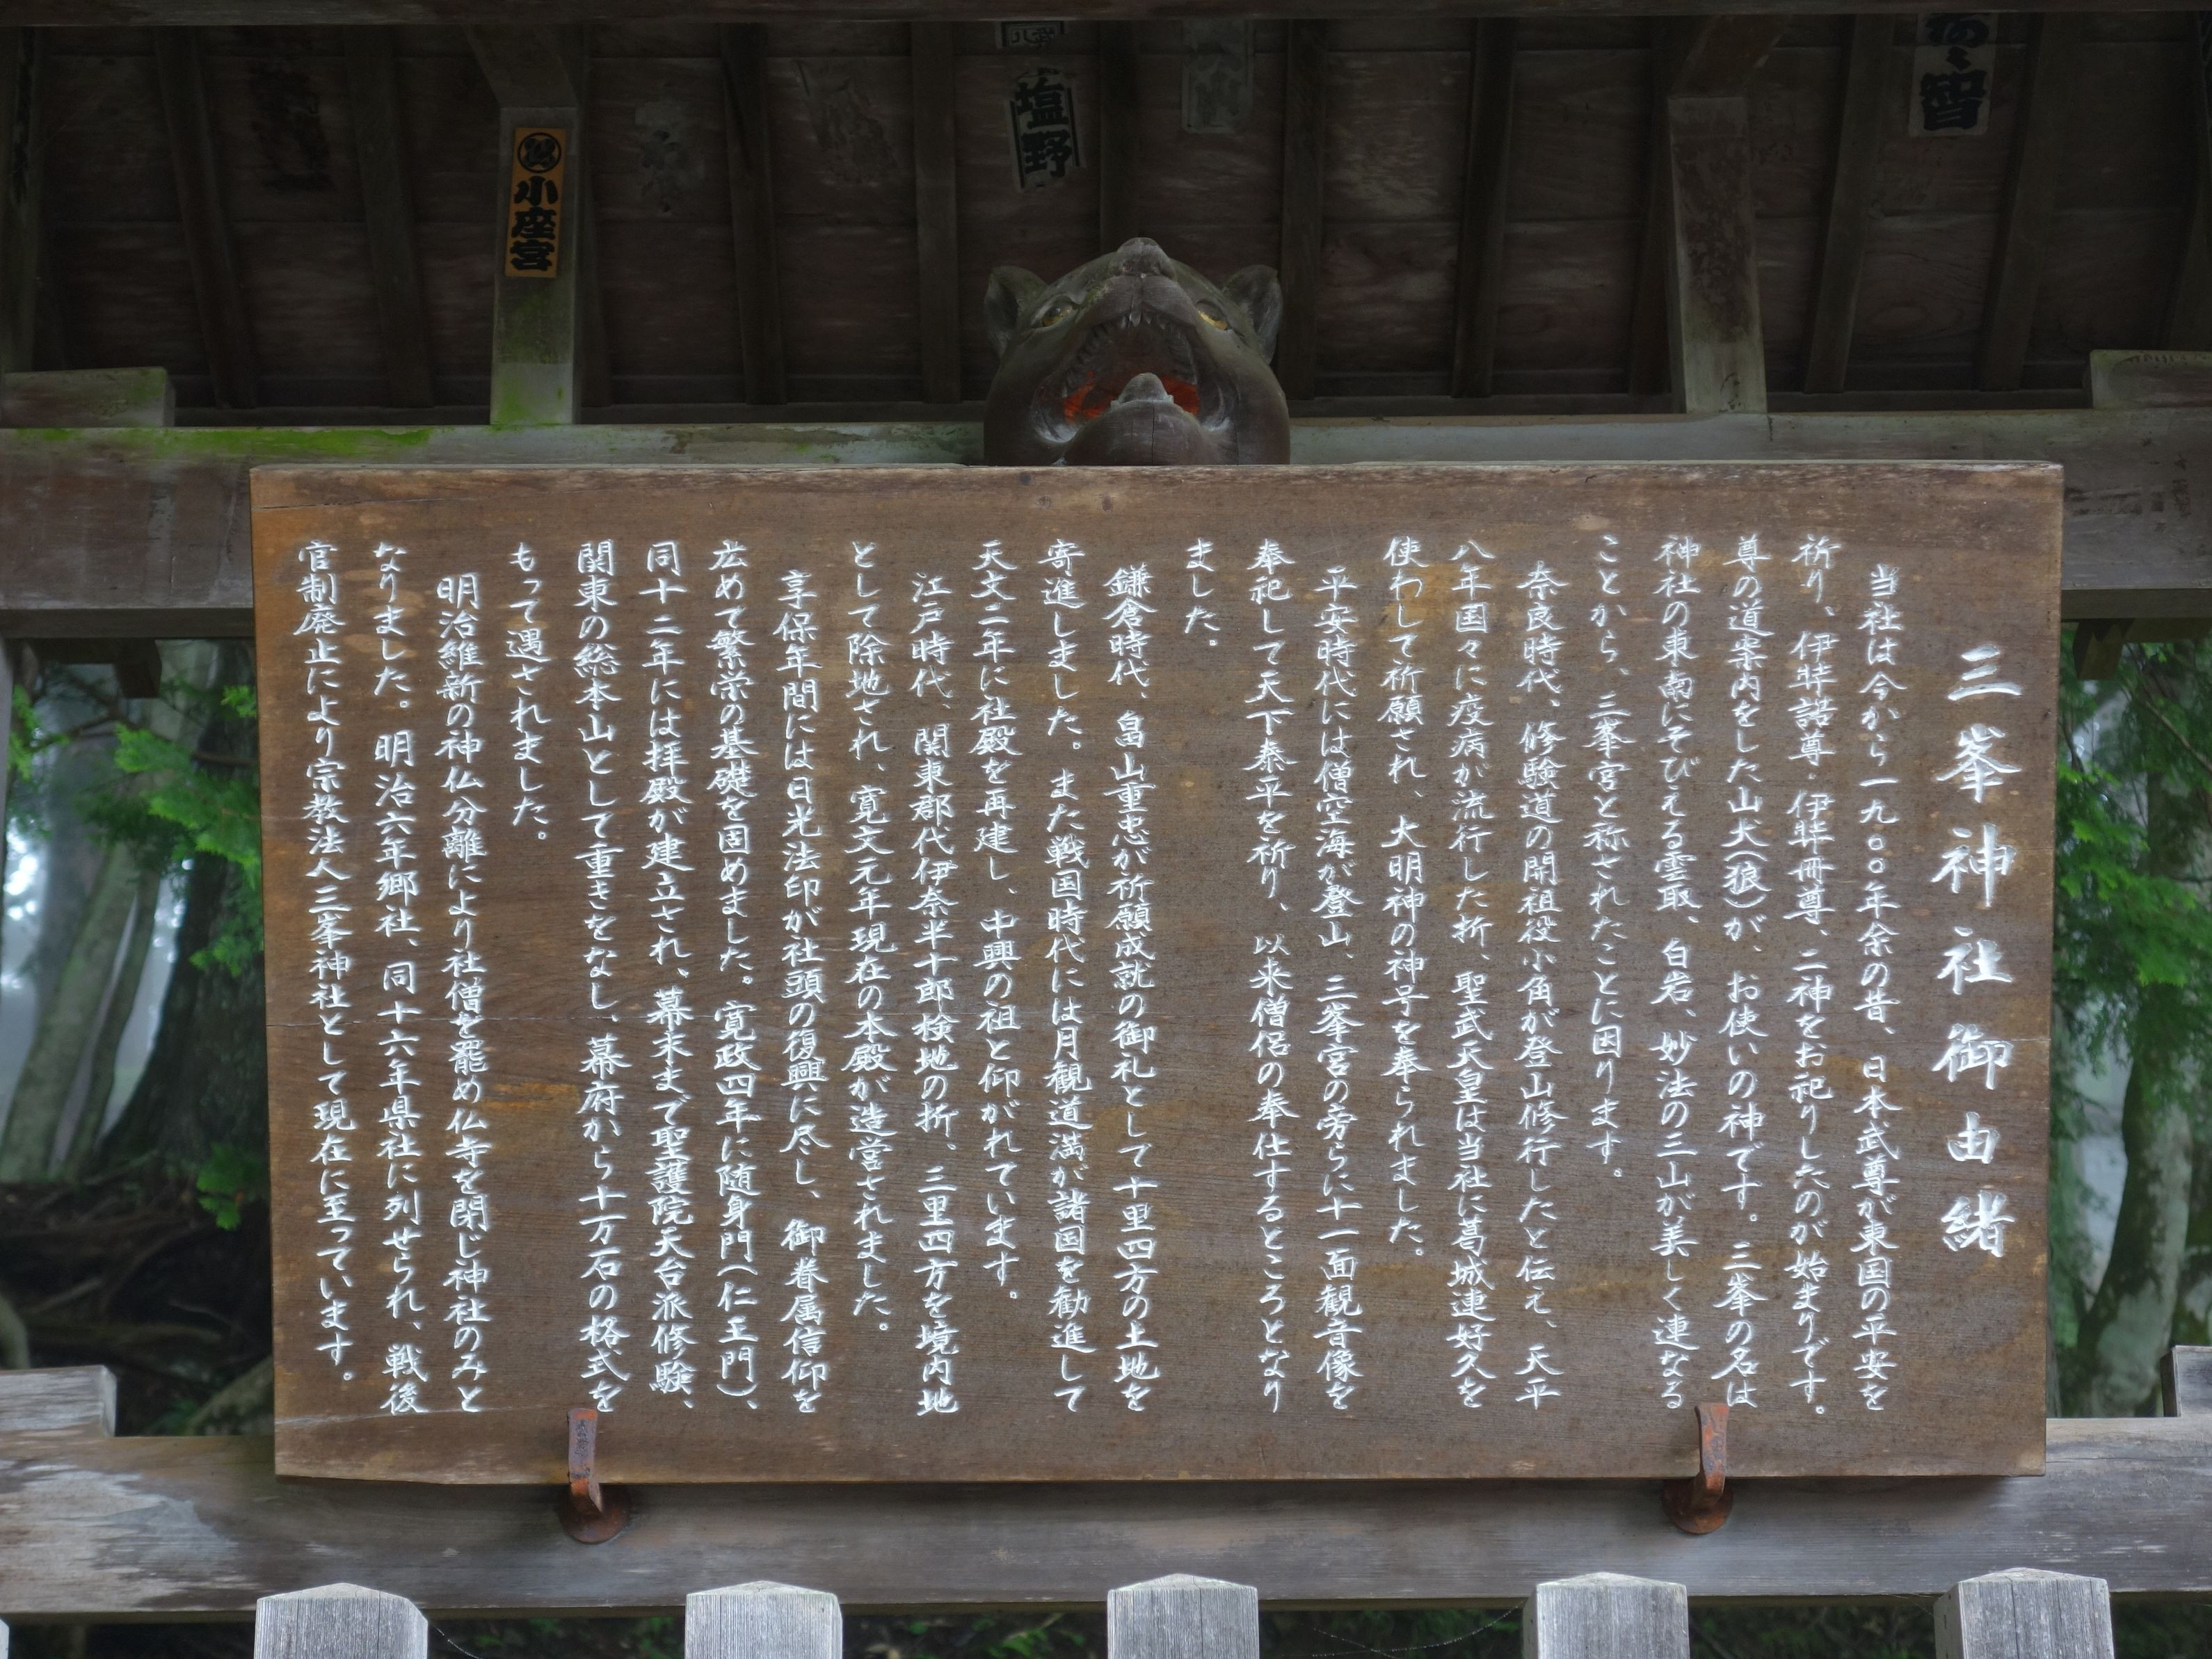 三峯神社御由緒
当社は今から一九〇〇年余の昔、日本武尊が東国の平安を
祈り、伊弉諾尊・伊弉冊尊、二神をお祀りしたのが始まりです。
尊の道案内をした山犬(狼)が、お使いの神です。三峯の名は
神社の東南にそびえる雲取、白岩、妙法の三山が美しく連なる
ことから、三峯宮と称されたことに因ります。
奈良時代、修験道の開祖役小角が登山修行したと伝え、天平
八年国々に疫病が流行した折、聖武天皇は当社に葛城連好久を
使わして祈願され、大明神の神号を奉られました。
平安時代には僧空海が登山、三峯宮の旁らに十一面観音像を
奉祀して天下泰平を祈り、以来僧侶の奉仕するところとなり
ました。
鎌倉時代、畠山重忠が祈願成就の御礼として十里四方の土地を
寄進しました。また戦国時代には月観道満が諸国を勧進して
天文二年に社殿を再建し、中興の祖と仰がれています。
江戸時代、関東郡代伊奈半十郎検地の折。三里四方を境内地
として除地され、寛文元年現在の本殿が造営されました。
享保年間には日光法印が社頭の復興に尽し、御眷属信仰を
広めて繁栄の基礎を固めました。寛政四年に随身門(仁王門)、
同十二年には拝殿が建立され、幕末まで聖護院天台派修験、
関東の総本山として重きをなし、幕府から十万石の格式を
もって遇されました。
明治維新の神仏分離により社僧を罷め仏寺を閉じ神社のみと
なりました。明治六年郷社、同十六年県社に列せられ、戦後
官制廃止により宗教法人三峯神社として現在に至っています。
小座宮
塩野
智